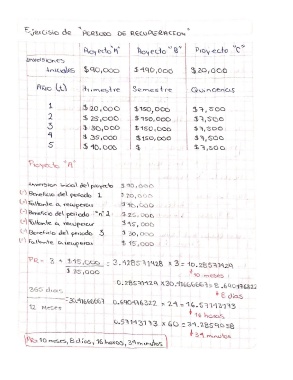 Ejercicio de "PERIODO DE RECUPERACION"
Proyecto "A" Proyecto "B" Proyecto "C"
Inversiones
Iniciales $90,000 $490,000 $20,000
Año (t) trimestre Semestre Quincenas
1 $20,000 $150,000 $7,500
2 $25,000 $150,000 $7,500
3 $30,000 $150,000 $7,500
4 $35,000 $150,000 $7,500
5 $40,000 $ $7,500
Proyecto "A"
Inversion inicial del proyecto $90,000
(-) Beneficio del periodo 1 $20,000
(=) Faltante a recuperar $70,000
(-) Beneficio del periodo "n" 2 $25,000
(=) Faltante a recuperar $45,000
(-) Beneficio del periodo 3 $30,000
(=) Faltante a recuperar $15,000
PR= 3 + $15,000 = 3.428571428 × 3 = 10.28571429
$35,000
10 meses
0.28571429 × 30.41666667 = 8.690476322
8 dias
365 dias = 30.41666667
12 Meses
0.690476322 × 24 = 16.57143173
16 horas
0.57143173 × 60 = 34.2859038
34 minutos
PR= 10 meses, 8 dias, 16 horas, 34 minutos